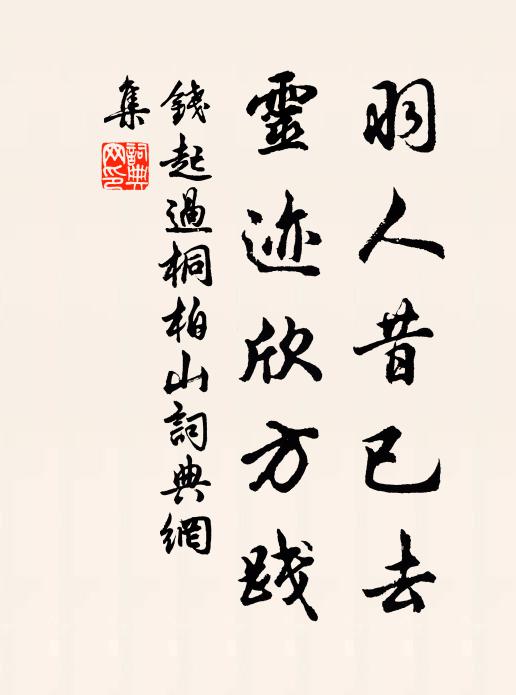 羽人昔已去
靈迹欣方踐
錢起過桐柏山詞典網
集
詞典
网印